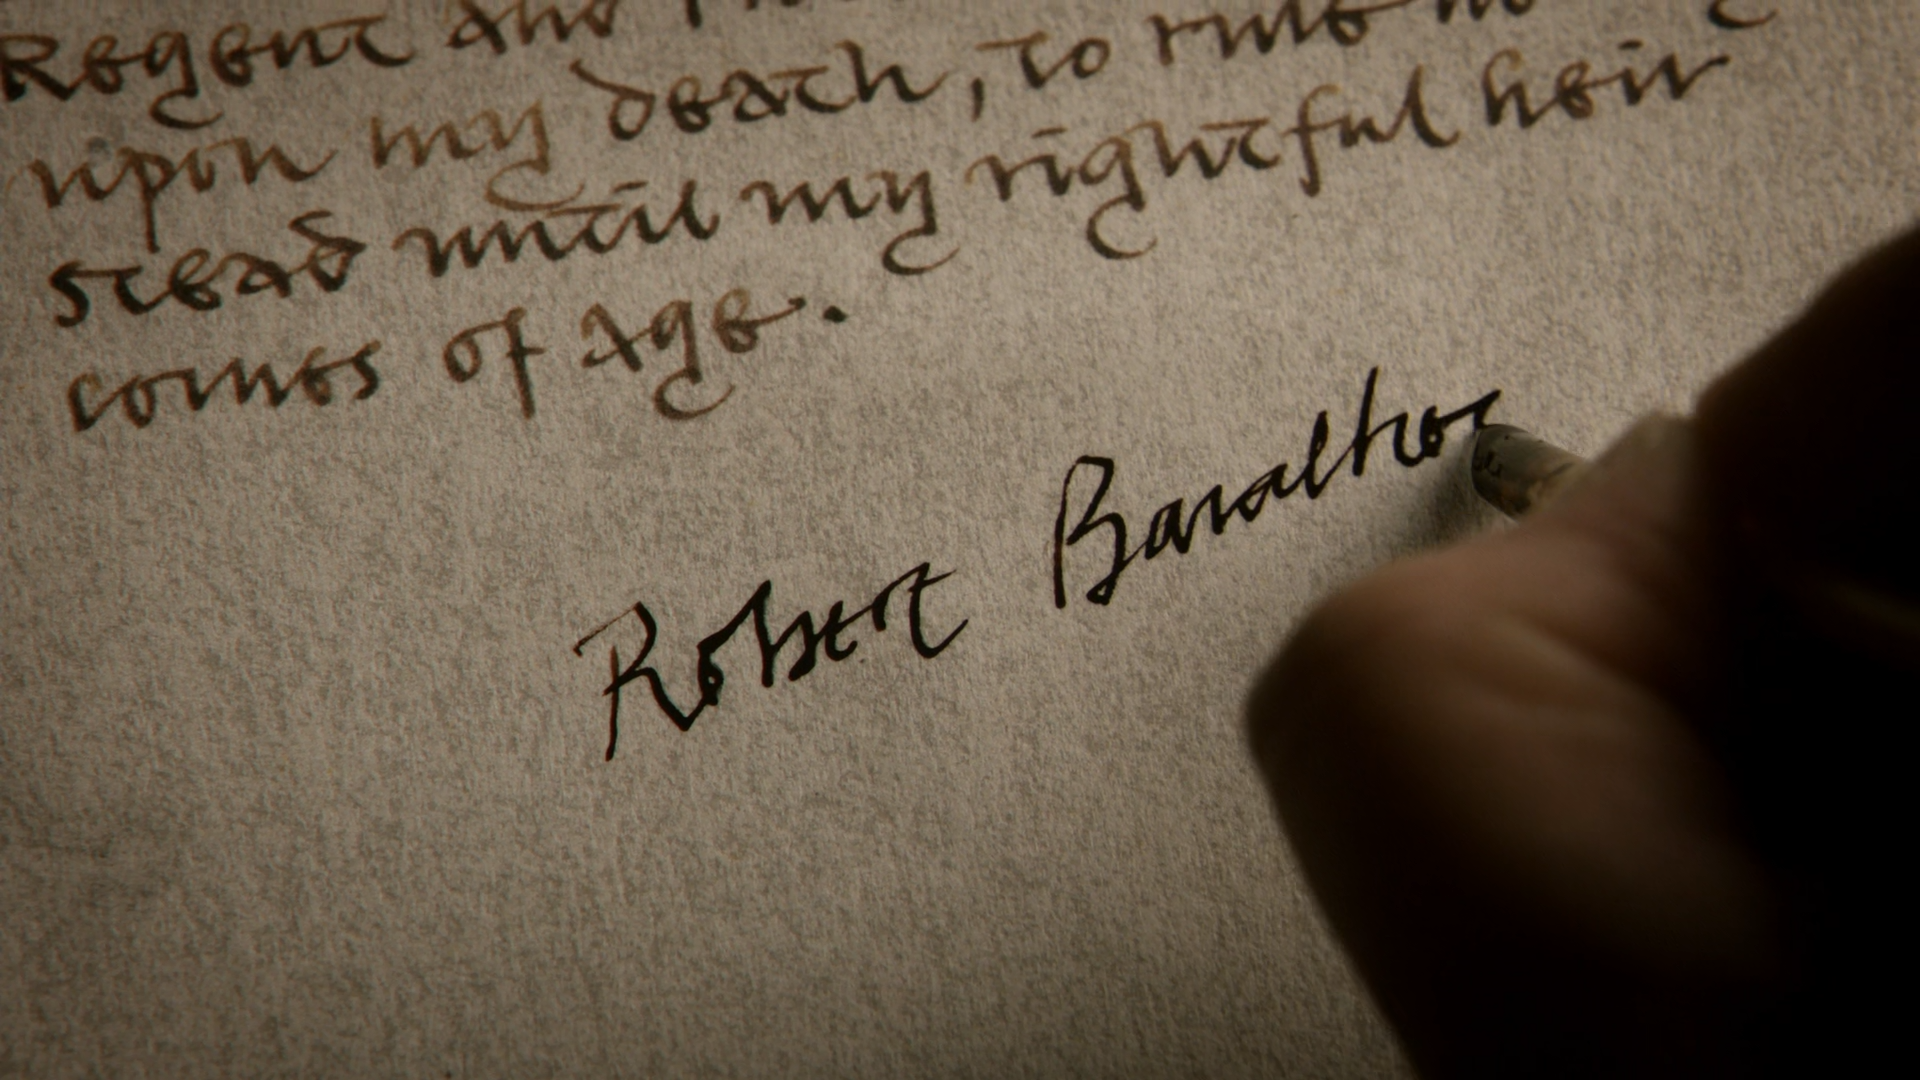 Regent and
upon my death, to rule in
stead until my rightful heir
comes of age.
Robert Baratheo